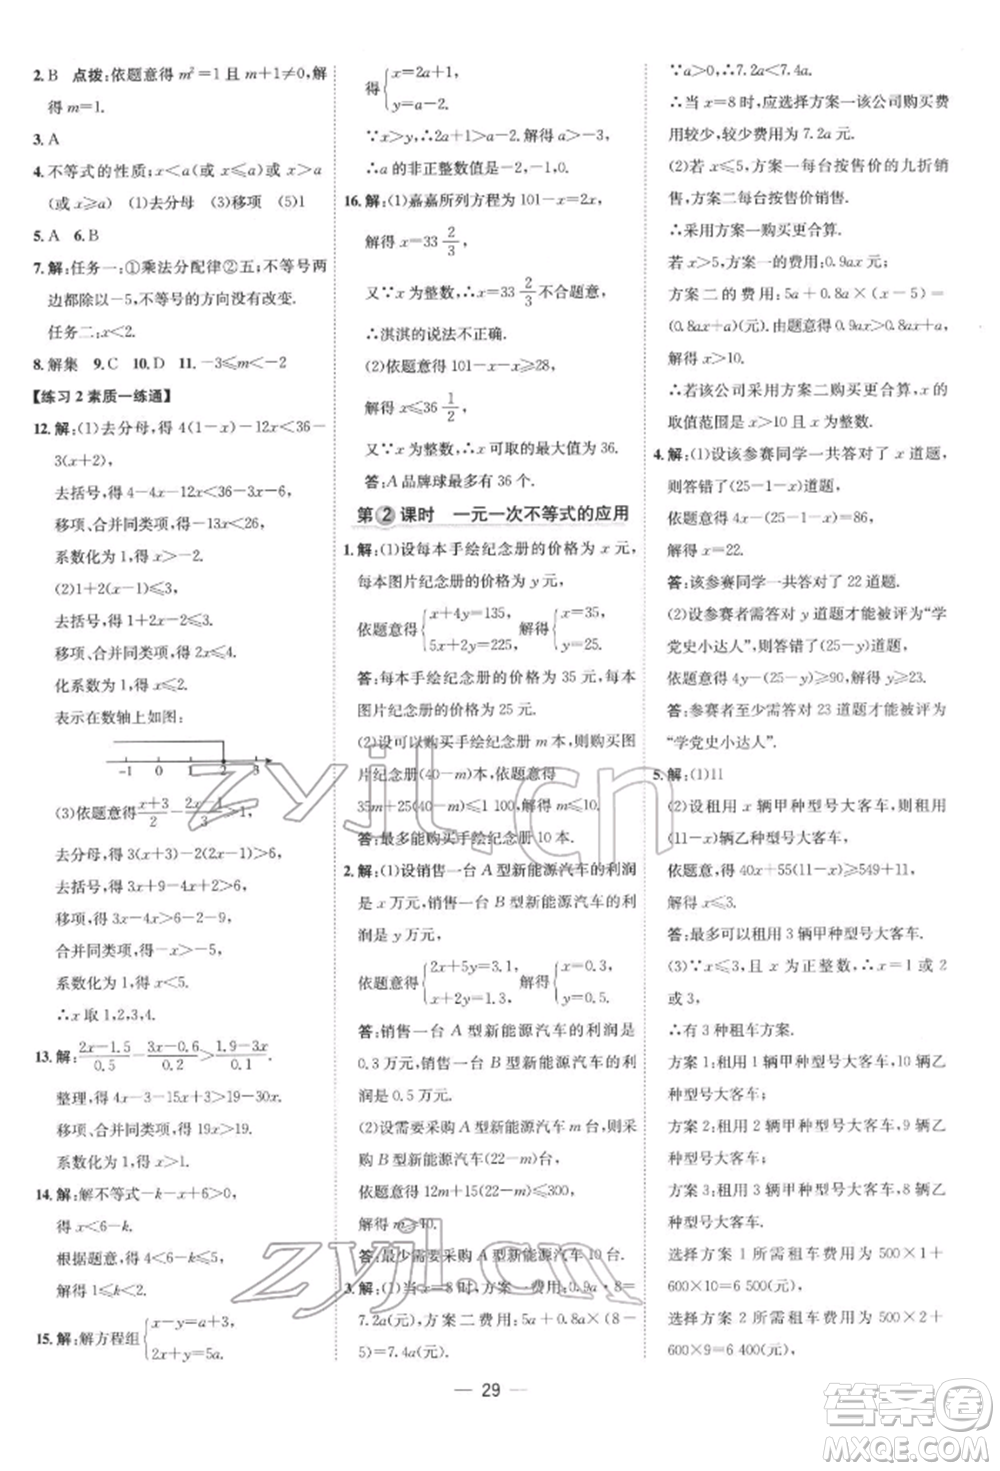 2. B 点拨:依题意得 m²=1 且 m+1≠0,解
得 m=1.
3. A
4. 不等式的性质;x<a(或 x≤a)或 x>a
(或 x≥a) (1)去分母 (3)移项 (5)1
5. A 6. B
7. 解:任务一:①乘法分配律②五;不等号两
边都除以-5,不等号的方向没有改变.
任务二:x<2.
8. 解集 9. C 10. D 11. -3≤m<-2
【练习 2 素质一练通】
12. 解:(1)去分母,得 4(1-x)-12x<36-
3(x+2),
去括号,得 4-4x-12x<36-3x-6,
移项、合并同类项,得-13x<26,
系数化为 1,得 x>-2.
(2)1+2(x-1)≤3,
去括号,得 1+2x-2≤3.
移项、合并同类项,得 2x≤4.
化系数为 1,得 x≤2.
表示在数轴上如图:
-1 0 1 2 3
(3)依题意得 (x+3)/2 - (x-1)/3 > 1,
去分母,得 3(x+3)-2(2x-1)>6,
去括号,得 3x+9-4x+2>6,
移项,得 3x-4x>6-2-9,
合并同类项,得-x>-5,
系数化为 1,得 x<5.
∴x 取 1,2,3,4.
13. 解: (2x-1.5)/0.5 - (3x-0.6)/0.2 > (1.9-3x)/0.1.
整理,得 4x-3-15x+3>19-30x.
移项、合并同类项,得 19x>19.
系数化为 1,得 x>1.
14. 解:解不等式-k-x+6>0,
得 x<6-k.
根据题意,得 4<6-k≤5,
解得 1≤k<2.
15. 解:解方程组{x-y=a+3,
2x+y=5a.
得{x=2a+1,
y=a-2.
∵x>y,∴2a+1>a-2. 解得 a>-3,
∴a 的非正整数值是-2,-1,0.
16. 解:(1)嘉嘉所列方程为 101-x=2x,
解得 x=33 2/3,
又∵x 为整数,∴x=33 2/3 不合题意,
∴淇淇的说法不正确.
(2)依题意得 101-x-x≥28,
解得 x≤36 1/2,
又∵x 为整数,∴x 可取的最大值为 36.
答:A 品牌球最多有 36 个.
第 2 课时 一元一次不等式的应用
1. 解:(1)设每本手绘纪念册的价格为 x 元,
每本图片纪念册的价格为 y 元,
依题意得{x+4y=135,
5x+2y=225,
解得{x=35,
y=25.
答:每本手绘纪念册的价格为 35 元,每本
图片纪念册的价格为 25 元.
(2)设可以购买手绘纪念册 m 本,则购买图
片纪念册(40-m)本,依题意得
35m+25(40-m)≤1 100,解得 m≤10.
答:最多能购买手绘纪念册 10 本.
2. 解:(1)设销售一台 A 型新能源汽车的利润
是 x 万元,销售一台 B 型新能源汽车的利
润是 y 万元,
依题意得{2x+5y=3.1,
x+2y=1.3,
解得{x=0.3,
y=0.5.
答:销售一台 A 型新能源汽车的利润是
0.3 万元,销售一台 B 型新能源汽车的利
润是 0.5 万元.
(2)设需要采购 A 型新能源汽车 m 台,则采
购 B 型新能源汽车(22-m)台,
依题意得 12m+15(22-m)≤300,
解得 m≥10.
答:最少需要采购 A 型新能源汽车 10 台.
3. 解:(1)当 x=8 时,方案一费用:0.9a·8=
7.2a(元),方案二费用:5a+0.8a(8-
5)=7.4a(元).
∵a>0,∴7.2a<7.4a.
∴当 x=8 时,应选择方案一该公司购买费
用较少,最少费用为 7.2a 元.
(2)若 x≤5,方案一每台按售价的九折销
售,方案二每台按售价销售.
∴采用方案一购买更合算.
若 x>5,方案一的费用:0.9ax 元,
方案二的费用:5a+0.8a(x-5)=
(0.8ax+a)(元). 由题意得 0.9ax>0.8ax+a,
解得 x>10.
∴若该公司采用方案二购买更合算,x 的
取值范围是 x>10 且 x 为正整数.
4. 解:(1)设该参赛同学一共答对了 x 道题,
则答错了(25-1-x)道题,
依题意得 4x-(25-1-x)=86,
解得 x=22.
答:该参赛同学一共答对了 22 道题.
(2)设参赛者需答对 y 道题才能被评为“学
党史小达人”,则答错了(25-y)道题,
依题意得 4y-(25-y)≥90,解得 y≥23.
答:参赛者至少需答对 23 道题才能被评为
“学党史小达人”.
5. 解:(1)11
(2)设租用 x 辆甲种型号大客车,则租用
(11-x)辆乙种型号大客车,
依题意得 40x+55(11-x)≥549+11,
解得 x≤3.
答:最多可以租用 3 辆甲种型号大客车.
(3)∵x≤3,且 x 为正整数,∴x=1 或 2
或 3,
∴有 3 种租车方案.
方案 1:租用 1 辆甲种型号大客车,10 辆乙
种型号大客车;
方案 2:租用 2 辆甲种型号大客车,9 辆乙
种型号大客车;
方案 3:租用 3 辆甲种型号大客车,8 辆乙
种型号大客车.
选择方案 1 所需租车费用为 500×1+
600×10=6 500(元),
选择方案 2 所需租车费用为 500×2+
600×9=6 400(元),
选择方案 3 所需租车费用为 500×3+
— 29 —
zyjl.cn
zyjl.cn
答案圈
MXQE.COM